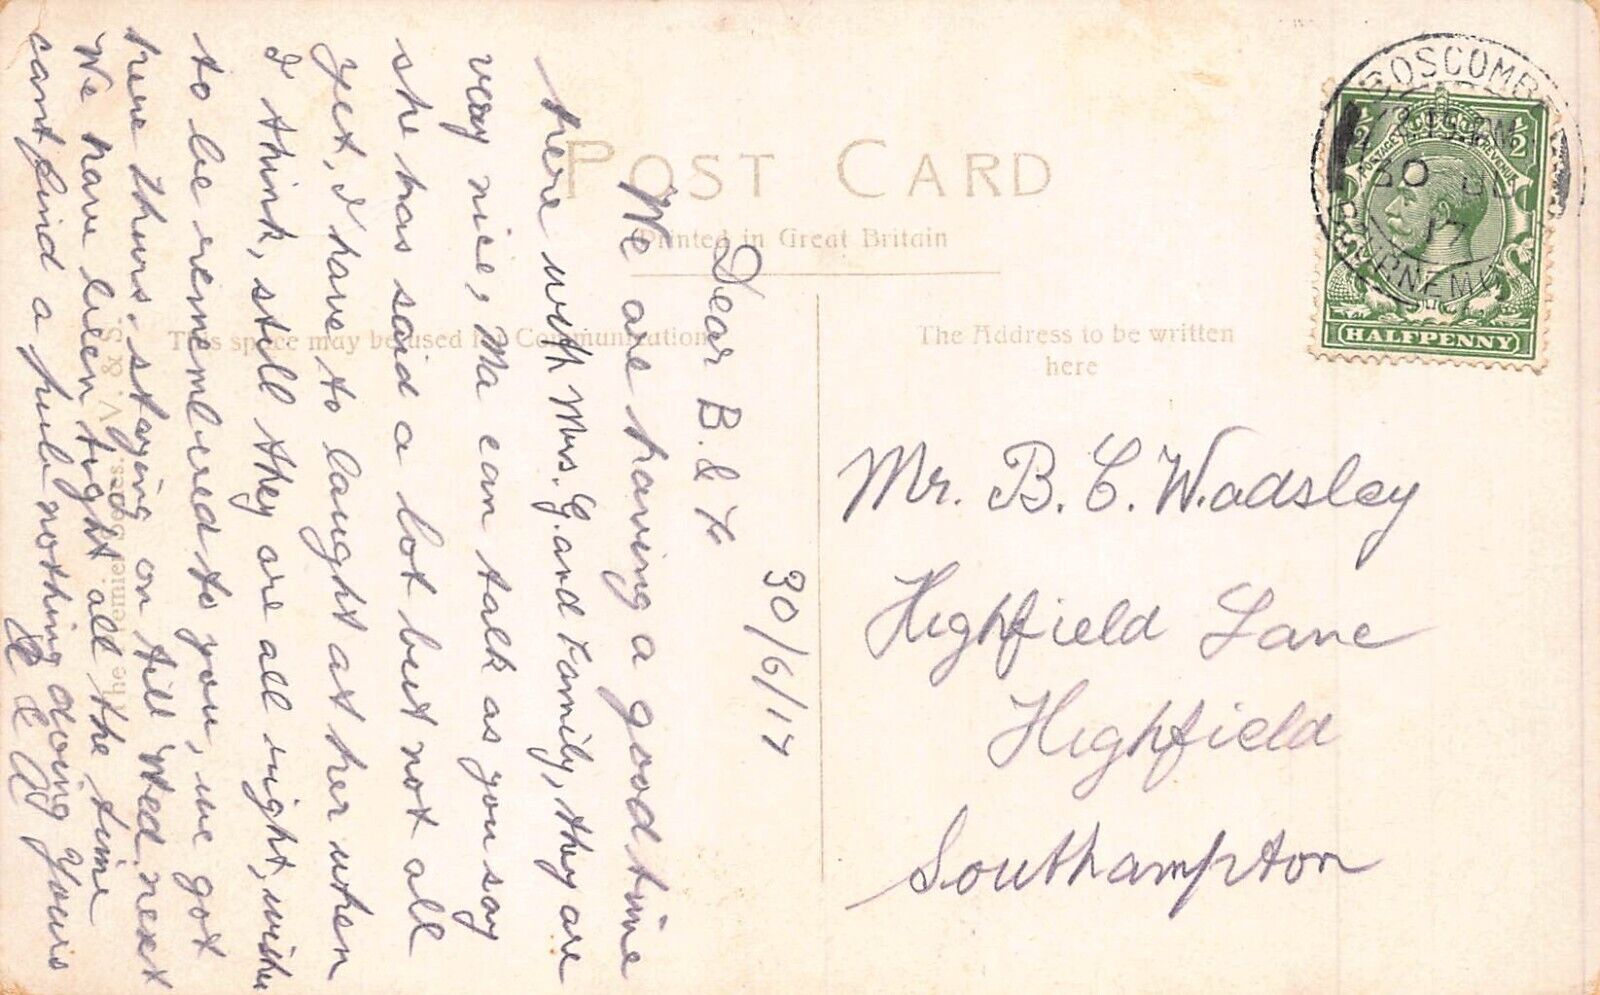 POST CARD
Printed in Great Britain
This space may be used for Communications
The Address to be written
here
BOSCOMBE
BOURNEMOUTH
30 JU
17
½ ½
POSTAGE REVENUE
HALFPENNY
Mr. B. C. Wadsley
Highfield Lane
Highfield
Southampton
30/6/17
Dear B. & K
We are having a good time
here with Mrs. G. and Family, they are
very nice, Ma can talk as you say
she has said a lot but not all
yet, I have to laught at her when
I think, still they are all right, wishes
to be remembured to you, we got
here thurs. staying on till Wed. next
We have been tight all the time
cant find a pub nothing doing Yours
V. & S.